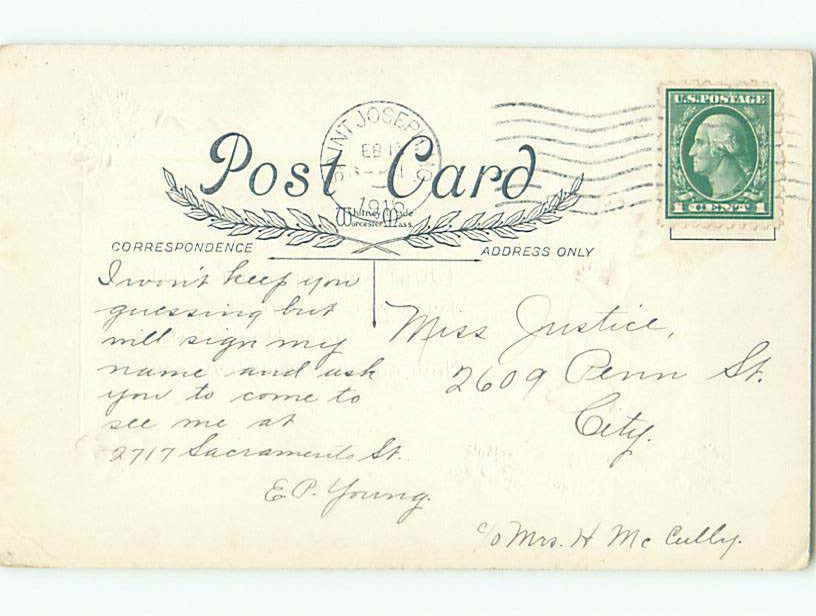 U.S. POSTAGE
1 CENT 1
SAINT JOSEPH, MO
1916
Post Card
Whitney Made
Worcester, Mass.
CORRESPONDENCE
ADDRESS ONLY
I won't keep you
guessing but
will sign my
name and ask
you to come to
see me at
2717 Sacramento St.
E.P. Young.
Miss Justice,
2609 Penn St.
City.
c/o Mrs. H McCully.